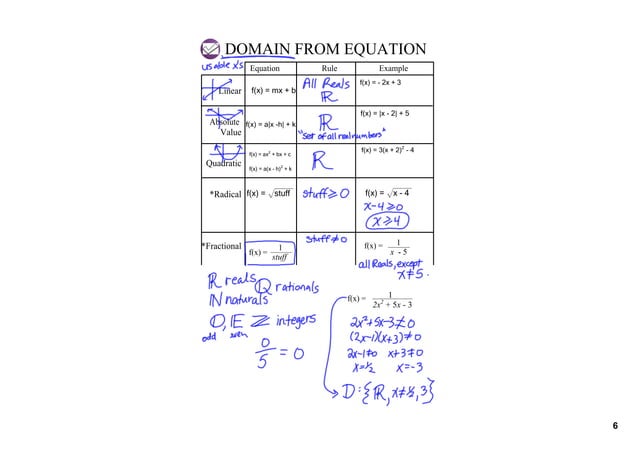 DOMAIN FROM EQUATION
usable x's
Equation Rule Example
Linear f(x) = mx + b All Reals ℝ f(x) = - 2x + 3
Absolute Value f(x) = a|x -h| + k ℝ f(x) = |x - 2| + 5
"Set of all real numbers"
Quadratic f(x) = ax² + bx + c ℝ f(x) = 3(x + 2)² - 4
f(x) = a(x - h)² + k
*Radical f(x) = √stuff stuff ≥ 0 f(x) = √x - 4
x-4 ≥ 0
x ≥ 4
*Fractional f(x) = 1/stuff stuff ≠ 0 f(x) = 1/x - 5
all Reals, except
x ≠ 5.
ℝ reals ℚ rationals
ℕ naturals
𝕆, 𝔼 ℤ integers
odd even
0/5 = 0
f(x) = 1/2x² + 5x - 3
2x²+5x-3 ≠ 0
(2x-1)(x+3) ≠ 0
2x-1 ≠ 0 x+3 ≠ 0
x = ½ x = -3
D: {ℝ, x ≠ ½, 3}
6